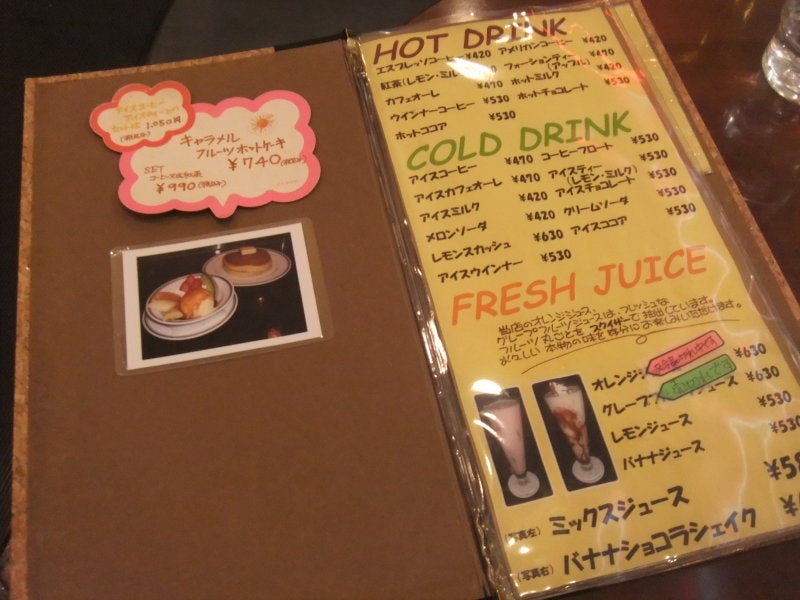 アイスコーヒー
アイスティー
セットは 1,050円
(税込み)
キャラメル
フルーツホットケーキ
¥740(税込み)
SET
コーヒー又は紅茶
¥990(税込み)
HOT DRINK
エスプレッソコーヒー ¥420 アメリカンコーヒー ¥420
紅茶(レモン・ミルク) フォーションティー ¥470
(アップル)
カフェオーレ ¥470 ホットミルク ¥420
ウインナーコーヒー ¥530 ホットチョコレート ¥530
ホットココア ¥530
COLD DRINK
アイスコーヒー ¥470 コーヒーフロート ¥530
アイスカフェオーレ ¥530 アイスティー ¥470
(レモン・ミルク)
アイスミルク ¥420 アイスチョコレート ¥530
メロンソーダ ¥420 クリームソーダ ¥530
レモンスカッシュ ¥630 アイスココア ¥530
アイスウインナー ¥530
FRESH JUICE
当店のオレンジジュース、
グレープフルーツジュースは、フレッシュな
フルーツ丸ごとを スクイザーで 抽出しています。
おいしい 本物の味を 存分に お楽しみいただけます。
オレンジ ¥630
グレープフ ジュース ¥630
レモンジュース ¥530
バナナジュース ¥530
(写真左) ミックスジュース
(写真右) バナナショコラシェイク